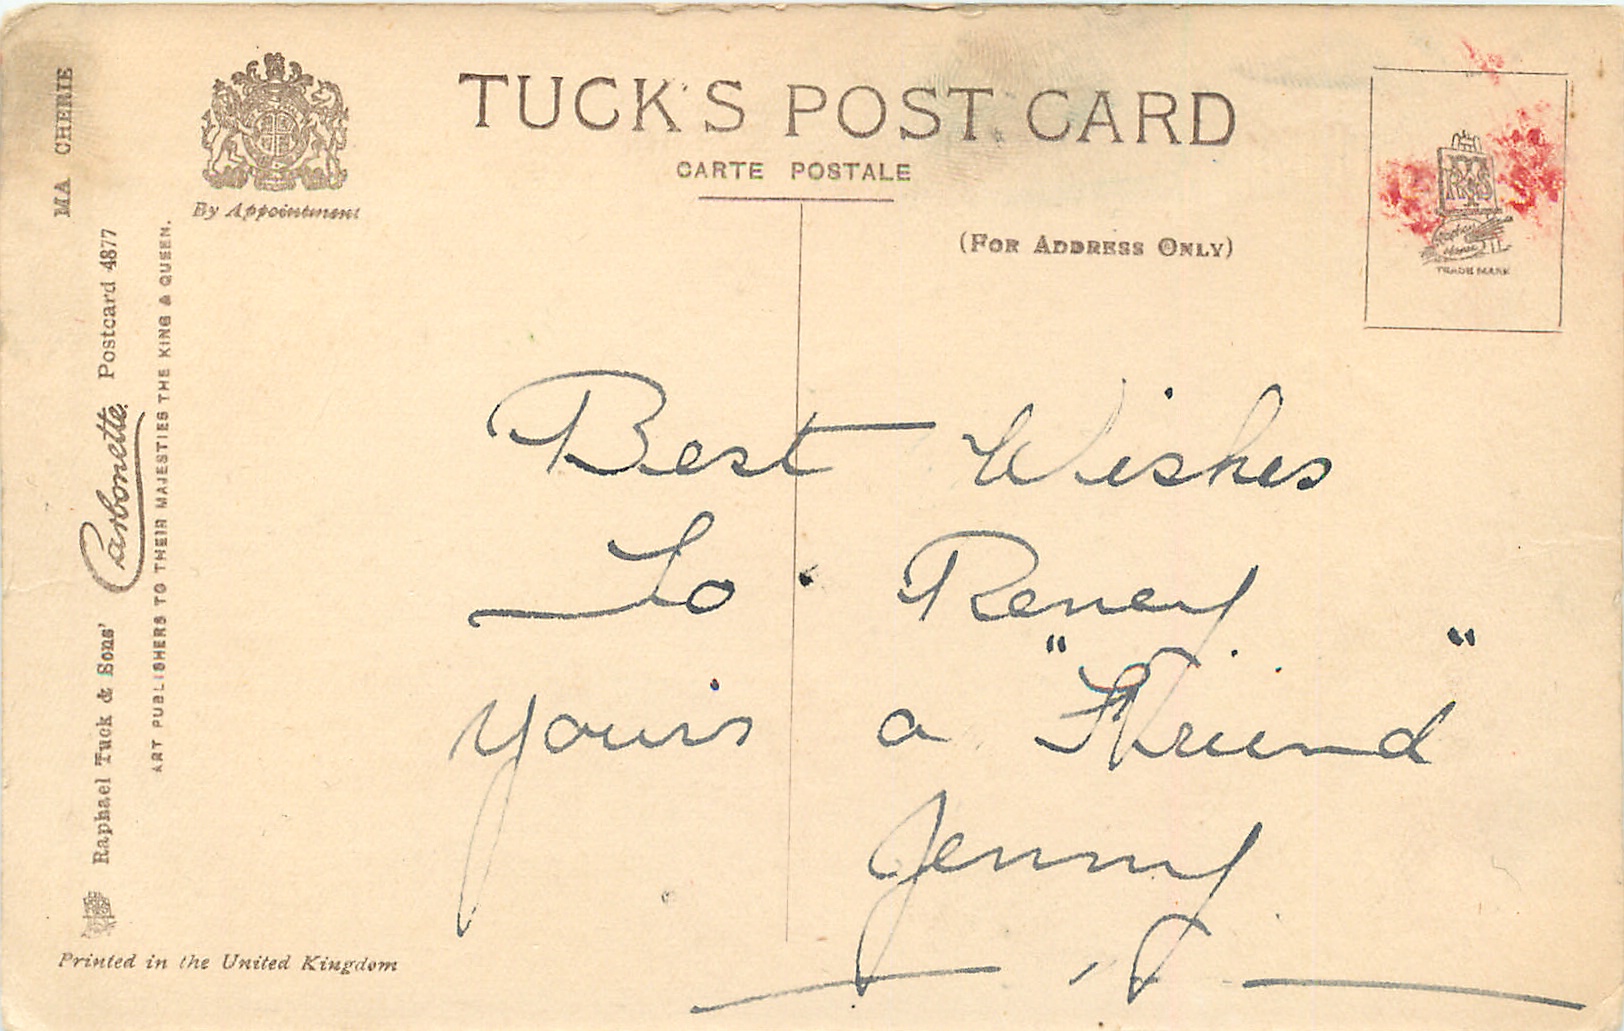 TUCK'S POST CARD
CARTE POSTALE
(FOR ADDRESS ONLY)
By Appointment
MA CHERIE
Raphael Tuck & Sons' Carbonette Postcard 4877
ART PUBLISHERS TO THEIR MAJESTIES THE KING & QUEEN.
Printed in the United Kingdom
TRADE MARK
Best Wishes
To Reney
yours a "Friend"
Jenny